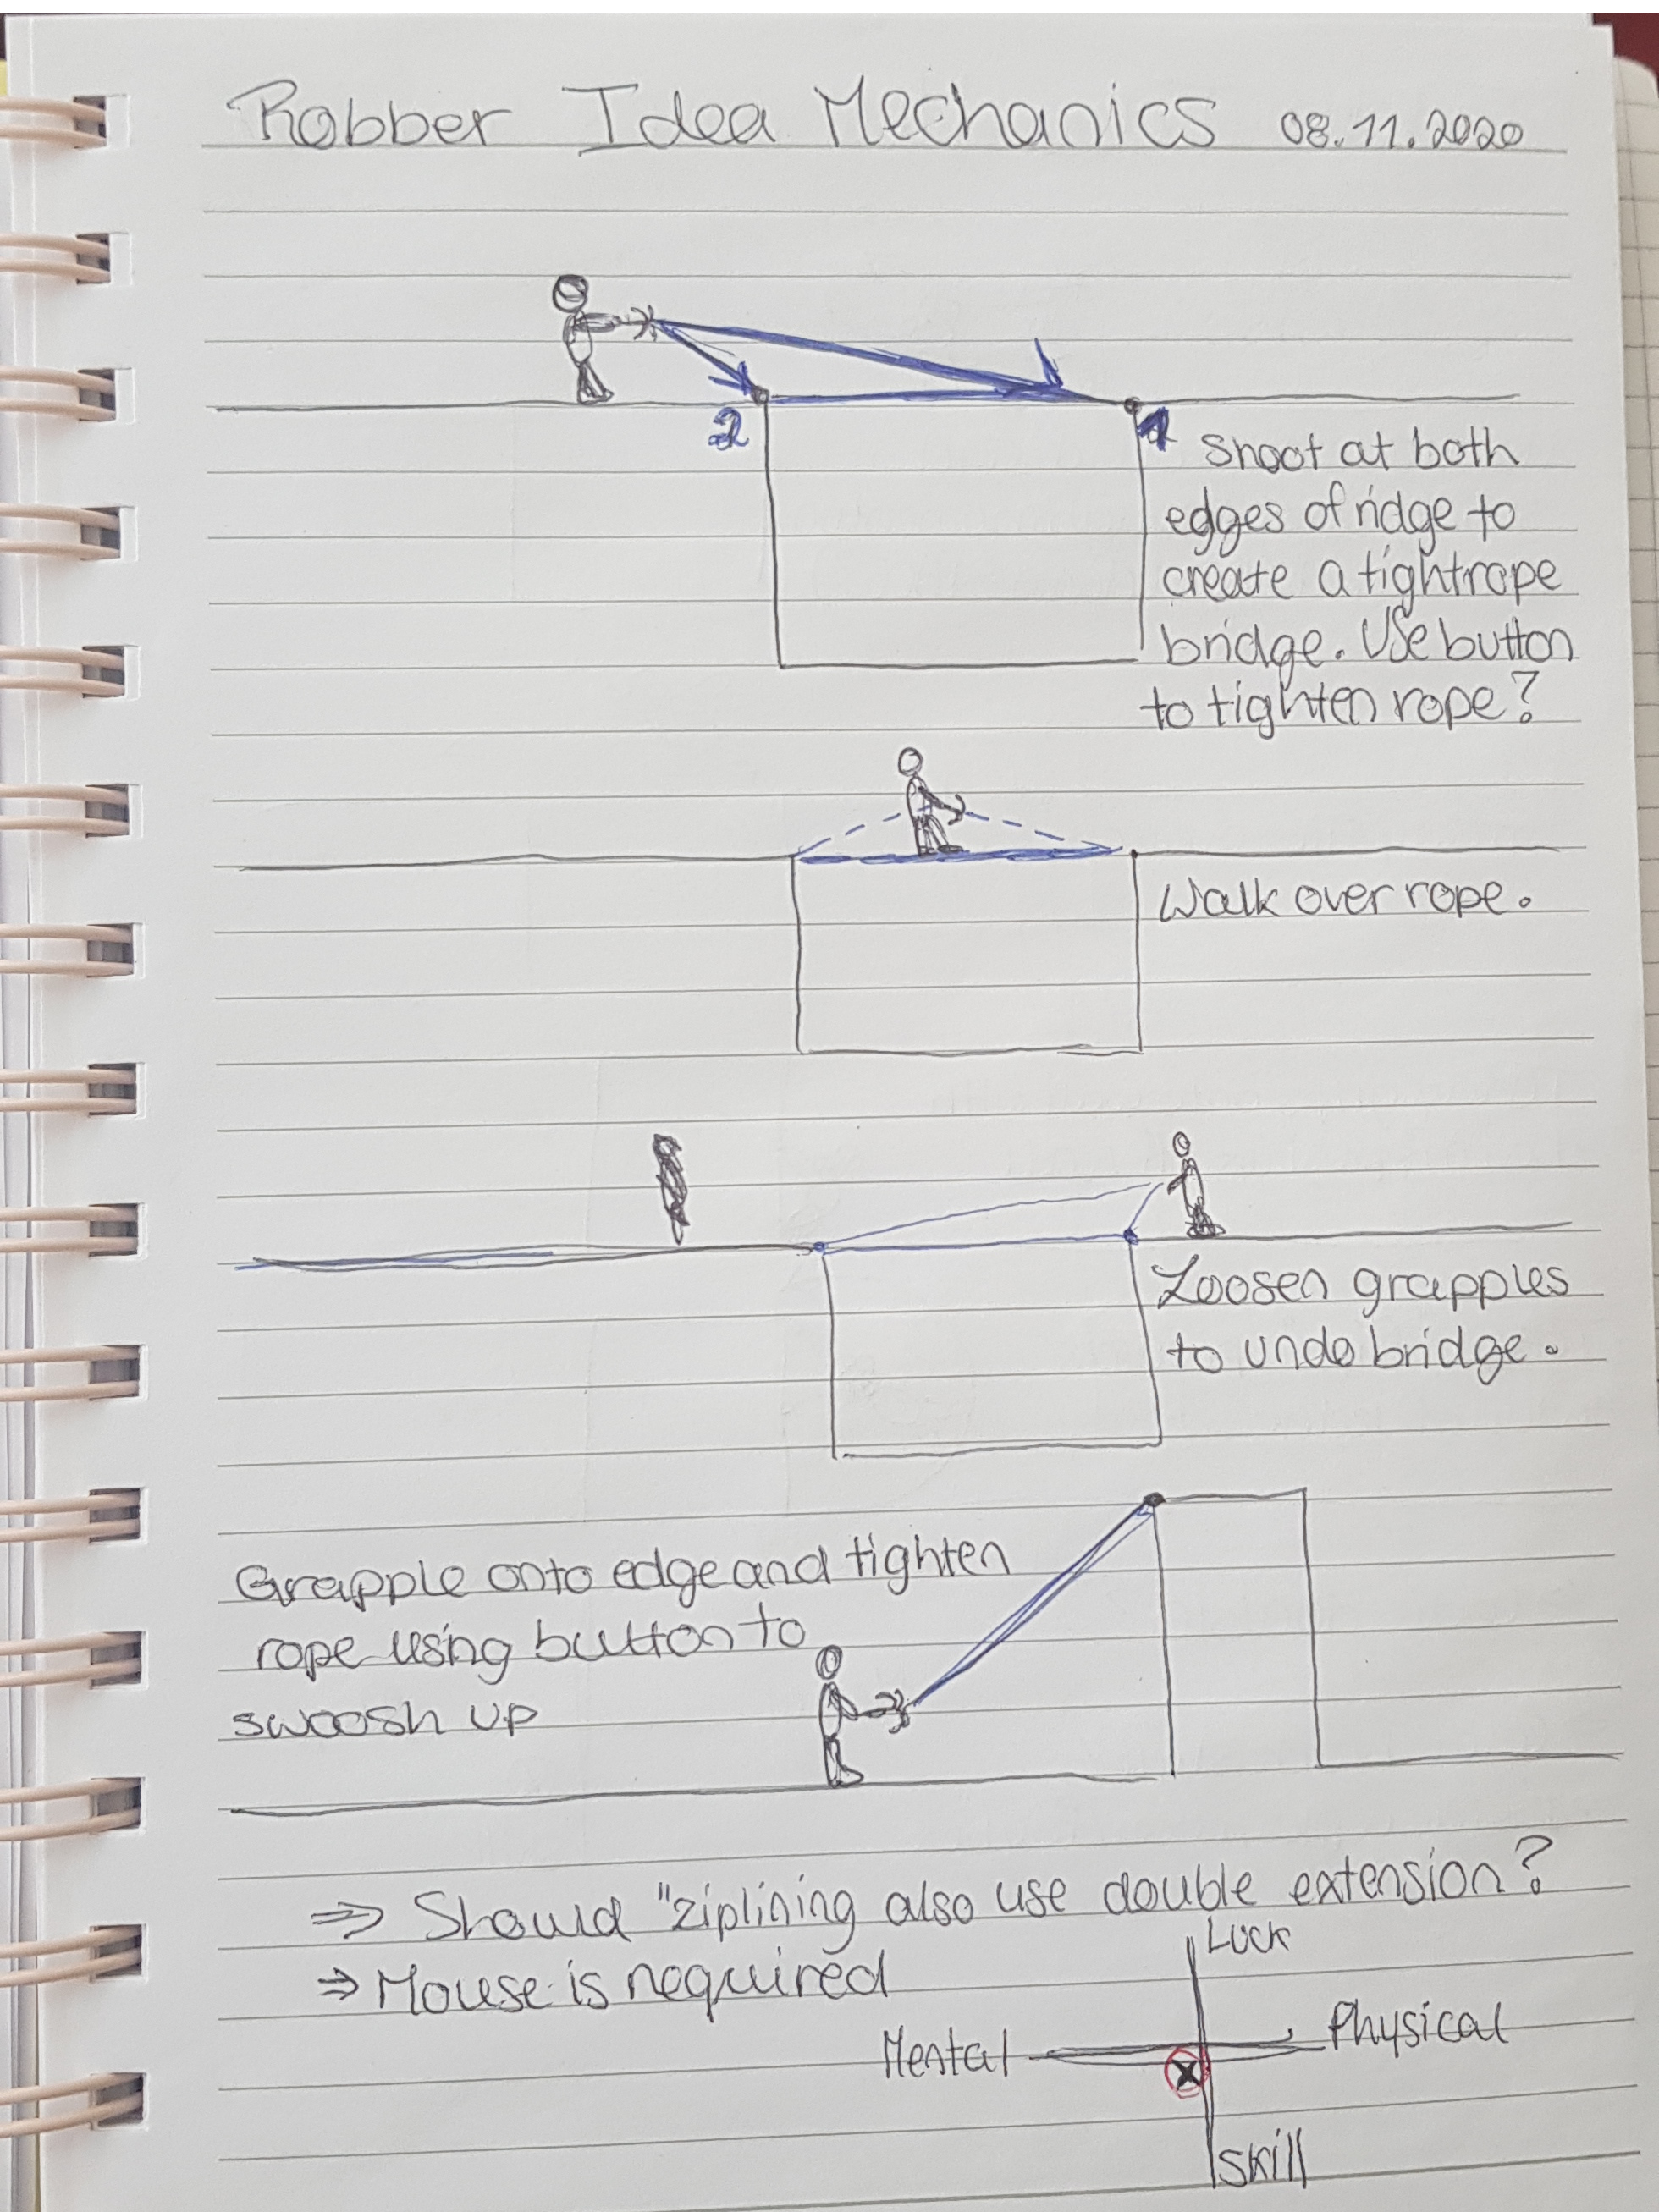 Robber Idea Mechanics 08.11.2020
2
1
Shoot at both
edges of ridge to
create a tightrope
bridge. Use button
to tighten rope?
Walk over rope.
Loosen grapples
to undo bridge.
Grapple onto edge and tighten
rope using button to
swoosh up
⇒ Should "ziplining also use double extension?
⇒ Mouse is required
Luck
Mental
Physical
Skill